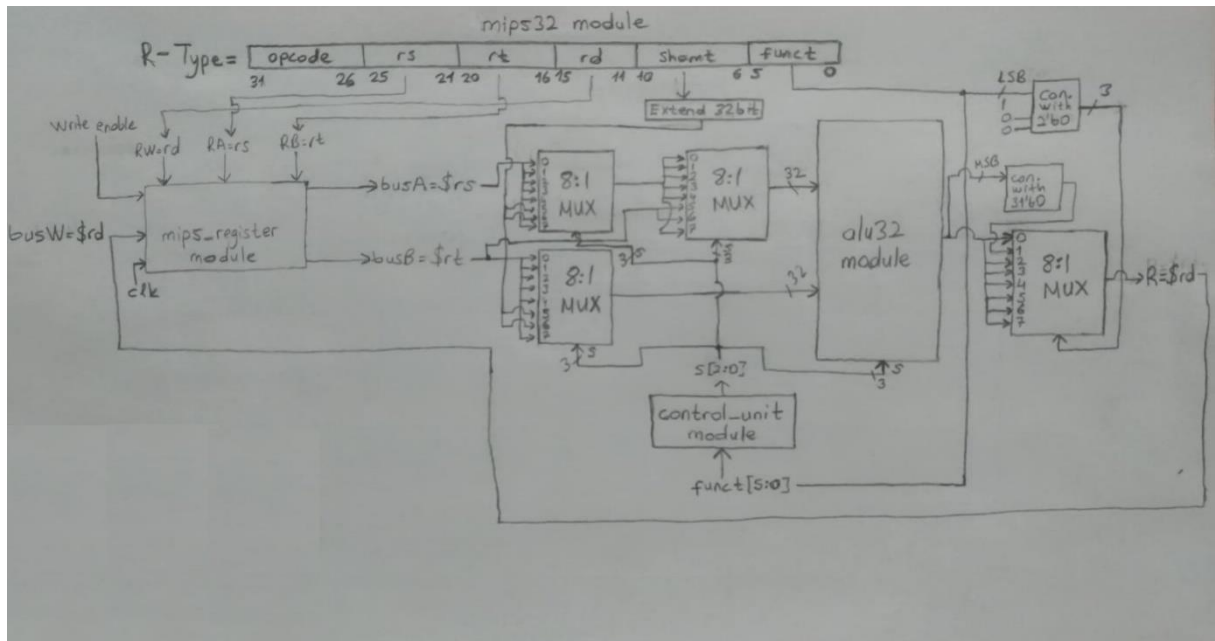 mips32 module
R-Type= opcode rs rt rd shamt funct
31 26 25 21 20 16 15 11 10 6 5 0
Extend 32bit
LSB
1
0
0
con. with 2'b0
3
Write enable
RW=rd RA=rs RB=rt
busW=$rd
clk
mips_register
module
busA=$rs
busB=$rt
0
1
2
3
8:1
MUX
3 S
0
1
2
3
8:1
MUX
S
3
32
0
1
2
3
8:1
MUX
3 S
32
alu32
module
3 S
MSB
con. with 31'b0
0
1
2
3
4
5
6
7
8:1
MUX
R=$rd
S[2:0]
control_unit
module
funct[5:0]